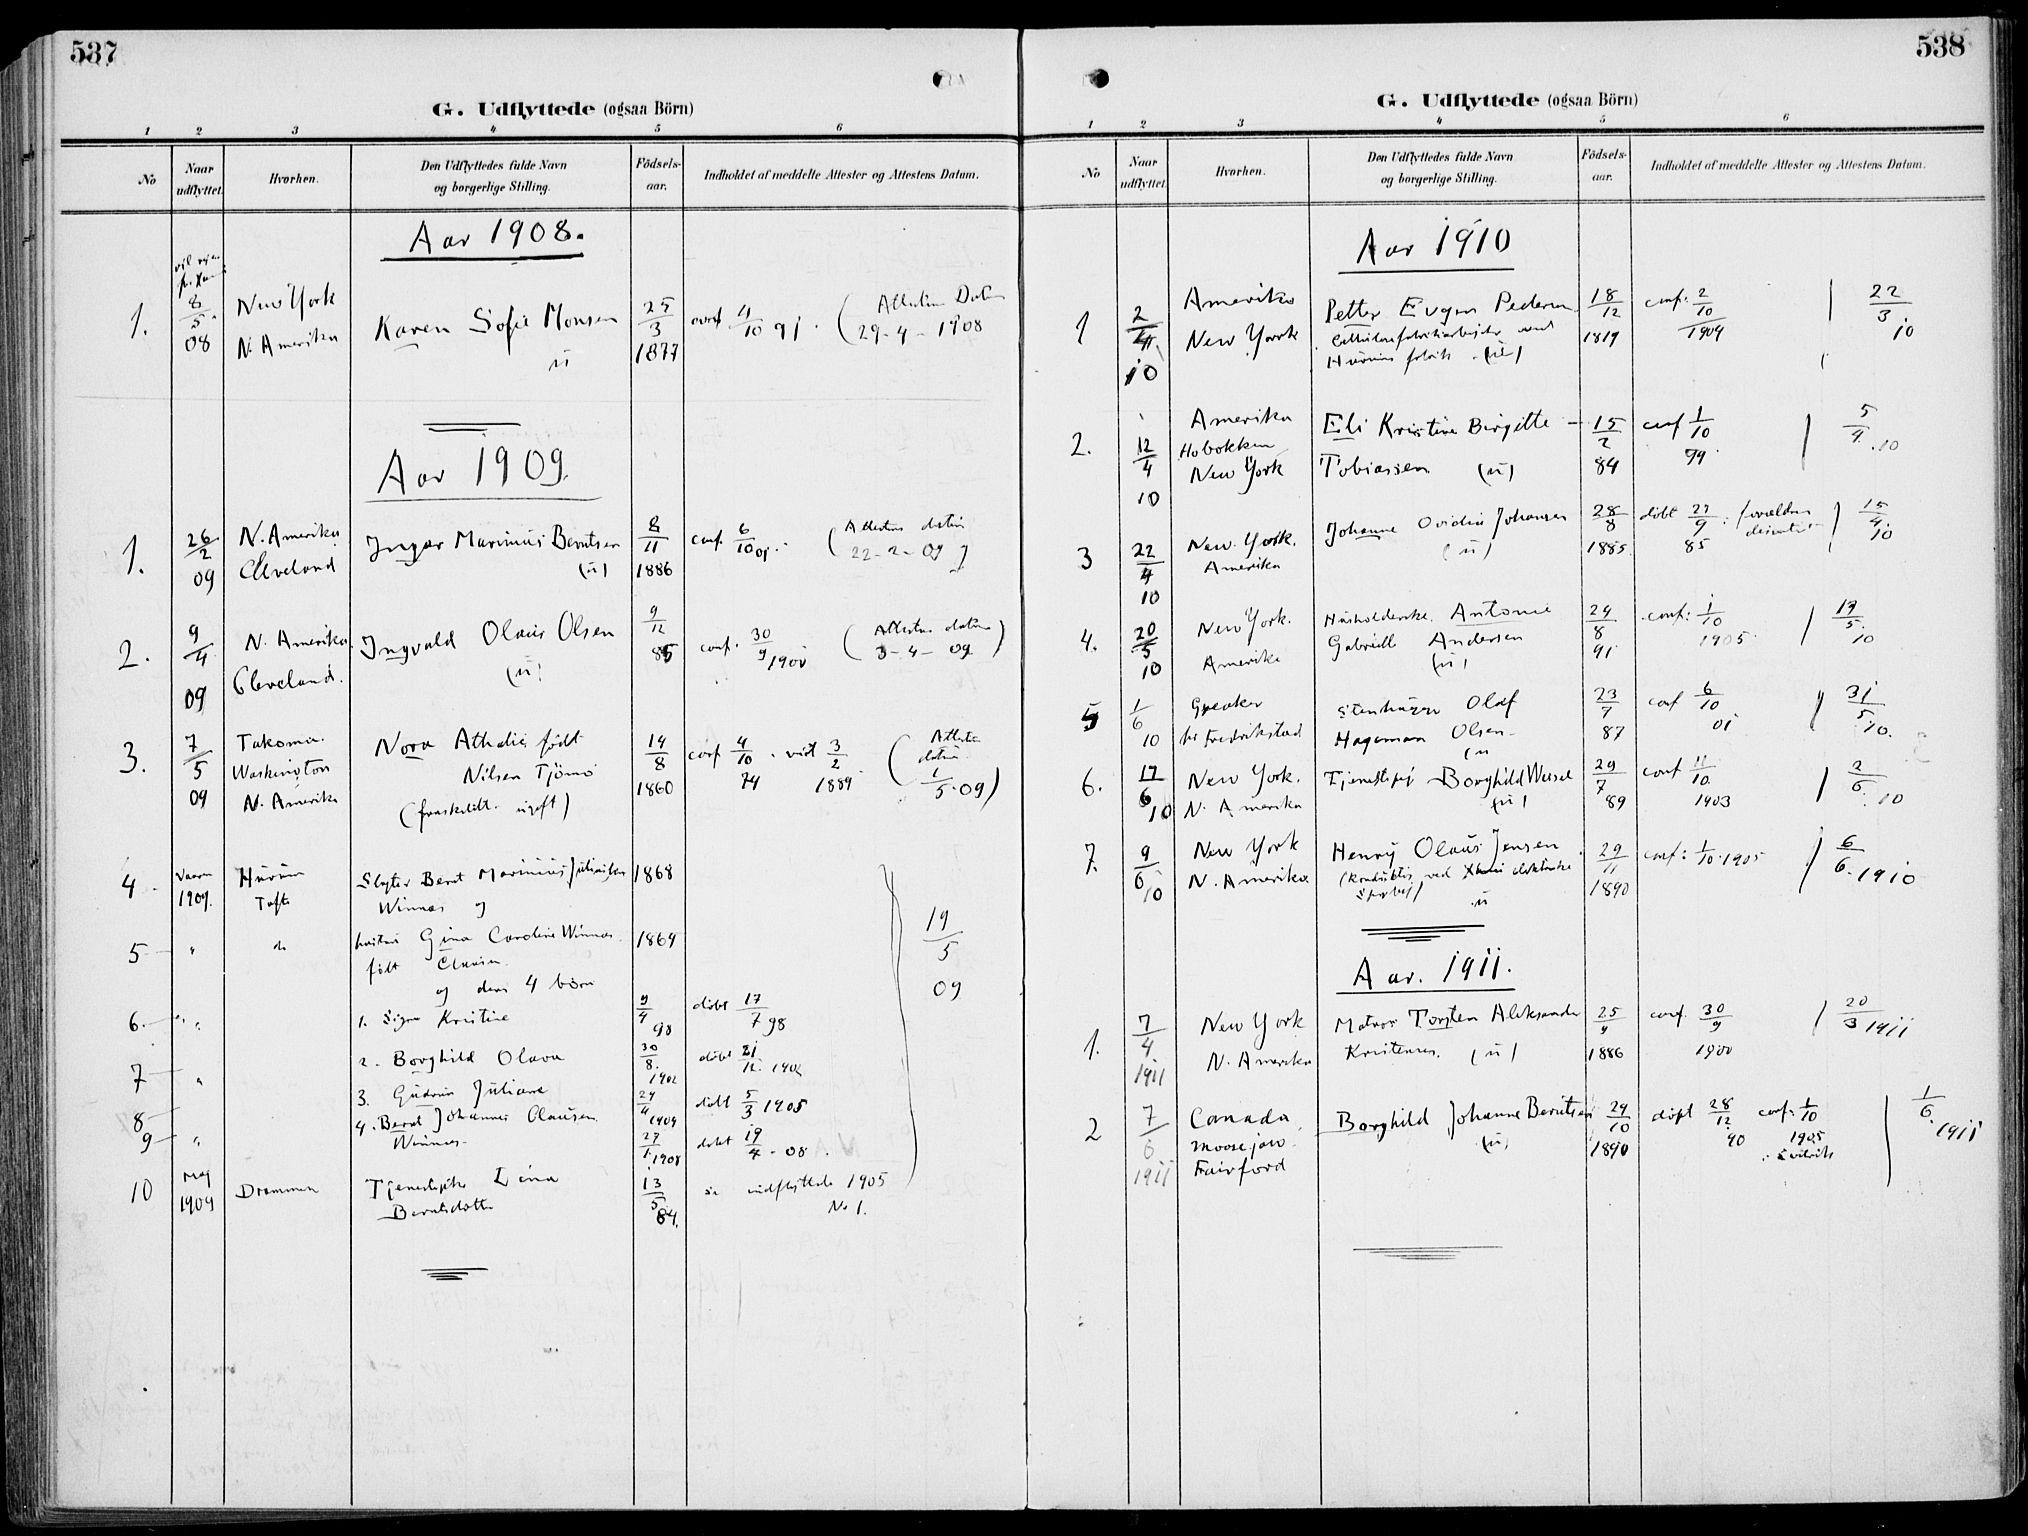 537
G. Udflyttede (ogsaa Börn)
1 2 3 4 5 6
No
Naar udflyttet.
Hvorhen.
Den Udflyttedes fulde Navn og borgerlige Stilling.
Födsels-aar.
Indholdet af meddelte Attester og Attestens Datum.
Aar 1908.
1.
8/5 08
New York
N. Amerika
Karen Sofie Monsen
ü
25/3 1877
conf 4/10 91.
(Attestens Datum
29-4-1908
Aar 1909.
1.
26/2 09
N. Amerika
Cleveland
Ingar Marinius Berntsen
(ü)
8/11 1886
conf. 6/10 01.
(Attestens datum
22-2-09)
2.
9/4 09
N. Amerika
Cleveland.
Ingvald Olaus Olsen
(ü)
9/12 85
conf. 30/9 1900
(Attestens datum
3-4-09)
3.
7/5 09
Takoma.
Washington
N. Amerika
Nora Athalie født
Nilsen Tjömö
(fraskildt. ugift)
14/8 1860
conf 4/10 74
vict 3/2 1889
(Attestens
datum
1/5.09)
4.
Vaaren 1909.
Hurum
Tofte
Slagter Bernt Marinius Juliussen
Winnæs og
1868
5
"
do
hustru Gina Caroline Winnæs.
født Clausen.
og deres 4 börn
1869
19/5 09
6.
"
1. Signe Kristine
9/4 98
döbt 17/7 98
7
"
2. Borghild Olava
30/8. 1902
döbt 21/12. 1902
8
3. Gudrun Juliane
24/4 1904
döbt 5/3 1905
9
"
4. Bernt Johannes Clausen
Winnæs.
27/1 1908
döbt 19/4-08.
10
Maj 1909
Drammen
Tjenestepike Lina
Berntsdatter
13/5 84.
se indflyttede 1905
No 1.
538
G. Udflyttede (ogsaa Börn)
1 2 3 4 5 6
No
Naar udflyttet.
Hvorhen.
Den Udflyttedes fulde Navn og borgerlige Stilling.
Födsels-aar.
Indholdet af meddelte Attester og Attestens Datum.
Aar 1910
1
2/4 10
Amerika
New York
Petter Eugen Pedersen
Cellulosefabrikarbeider ved
Hurums fabrik. (ü)
18/12 1889
conf: 2/10 1904
22/3 10
2.
12/4 10
Amerika
Hobokken
New York
Eli Kristine Birgitte
Tobiassen (ü)
15/2 84
conf 1/10 99.
5/4.10
3
22/4 10
New York.
Amerika
Johanne Ovidia Johansen
(ü)
28/8 1885.
döbt 27/9 85: forældre
dissentere
15/4 10
4.
20/5 10
New York.
Amerika
Husholderske Antonie
Gabrielle Andersen
(ü)
24/8 91
conf: 1/10 1905.
19/5. 10
5
1/6 10
Greaker
br Fredrikstad
Stenhugger Olaf
Hageman Olsen.
(ü
23/7 87
conf 6/10 01
31/5.10.
6.
17/6 10
New York.
N. Amerika
Tjenestepig Borghild Wessel
(ü)
29/7 89
conf 11/10. 1903
2/6.10
7.
9/6 10
New York
N. Amerika
Henry Olaus Jensen.
(Konduktör ved Xtiania elektriske
Sporvej)
ü
29/11 1890
conf: 1/10.1905
6/6.1910
Aar. 1911.
1.
7/4 1911
New York
N. Amerika
Matros Torsten Aleksander
Kristensen. (ü)
25/4 1886
conf. 30/9 1900
20/3 1911
2
7/6 1911
Canada,
Moosejaw.
Fairford
Borghild Johanne Berntsen
(ü)
24/10 1890
döpt 28/12 90
conf: 1/10 1905
1/6. 1911